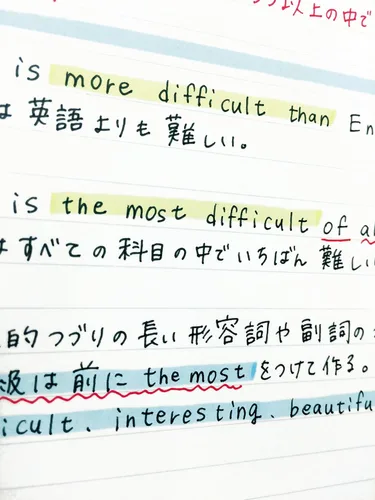 以上の中で
is more difficult than En
は英語よりも難しい。
is the most difficult of a
はすべての科目の中でいちばん難しい
的つづりの長い形容詞や副詞の
級は前に the most をつけて作る。
icult、interesting、beautifu